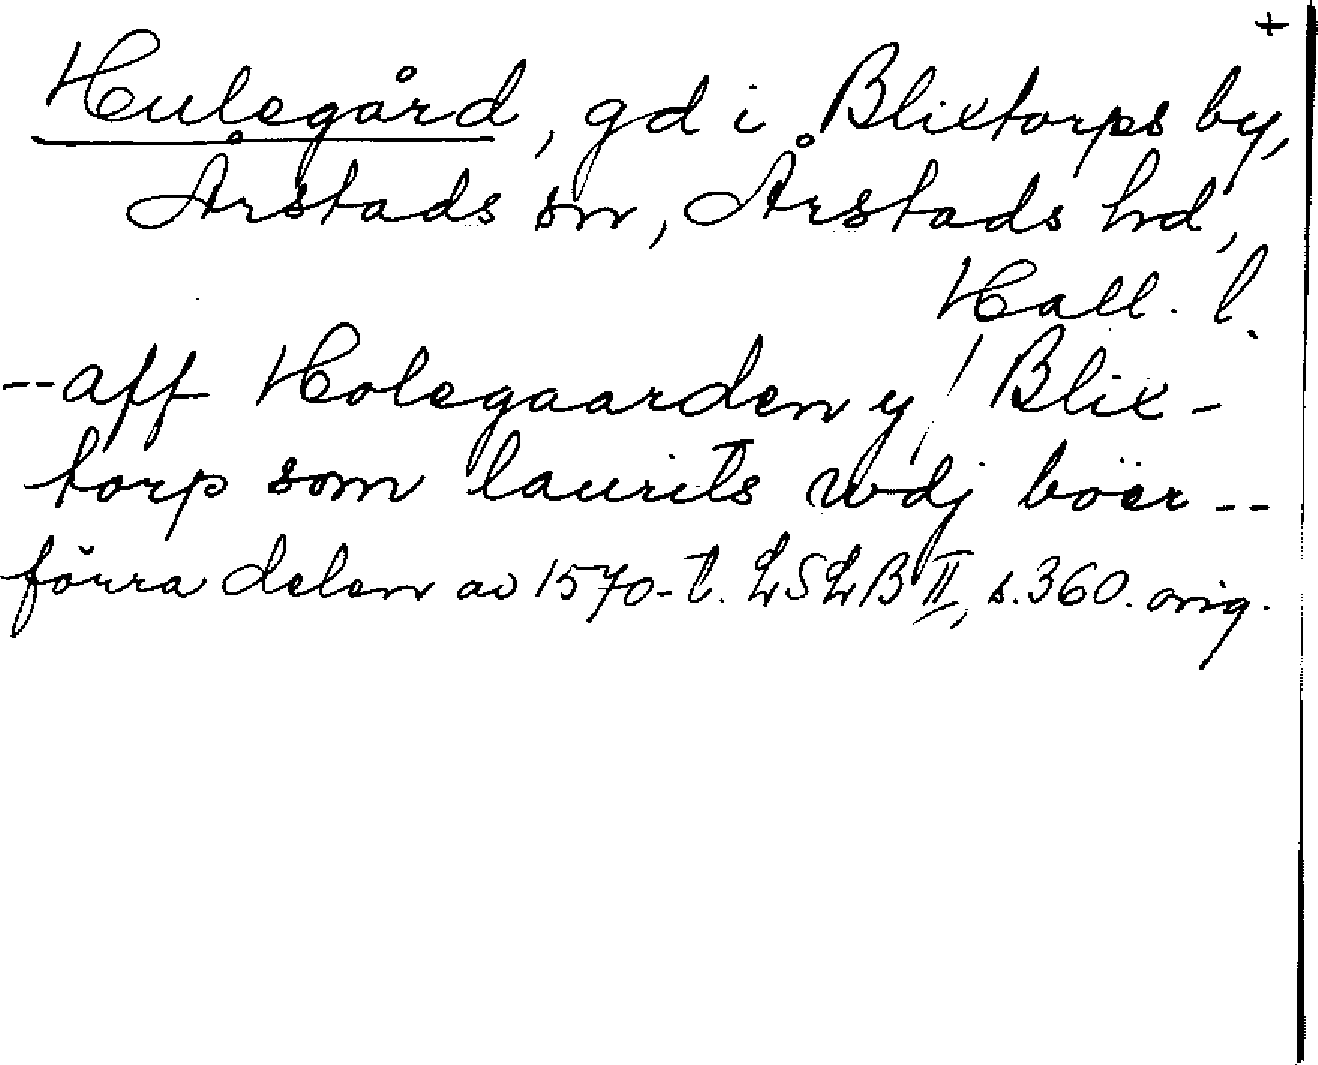 +
Hulegård, gd i Blixtorps by,
Årstads sn, Årstads hd,
Hall. l.
-- aff Holegaarden y! Blix-
torp som laurits wdj boer --
förra delen av 1570-t. LSLB II, s. 360. orig.